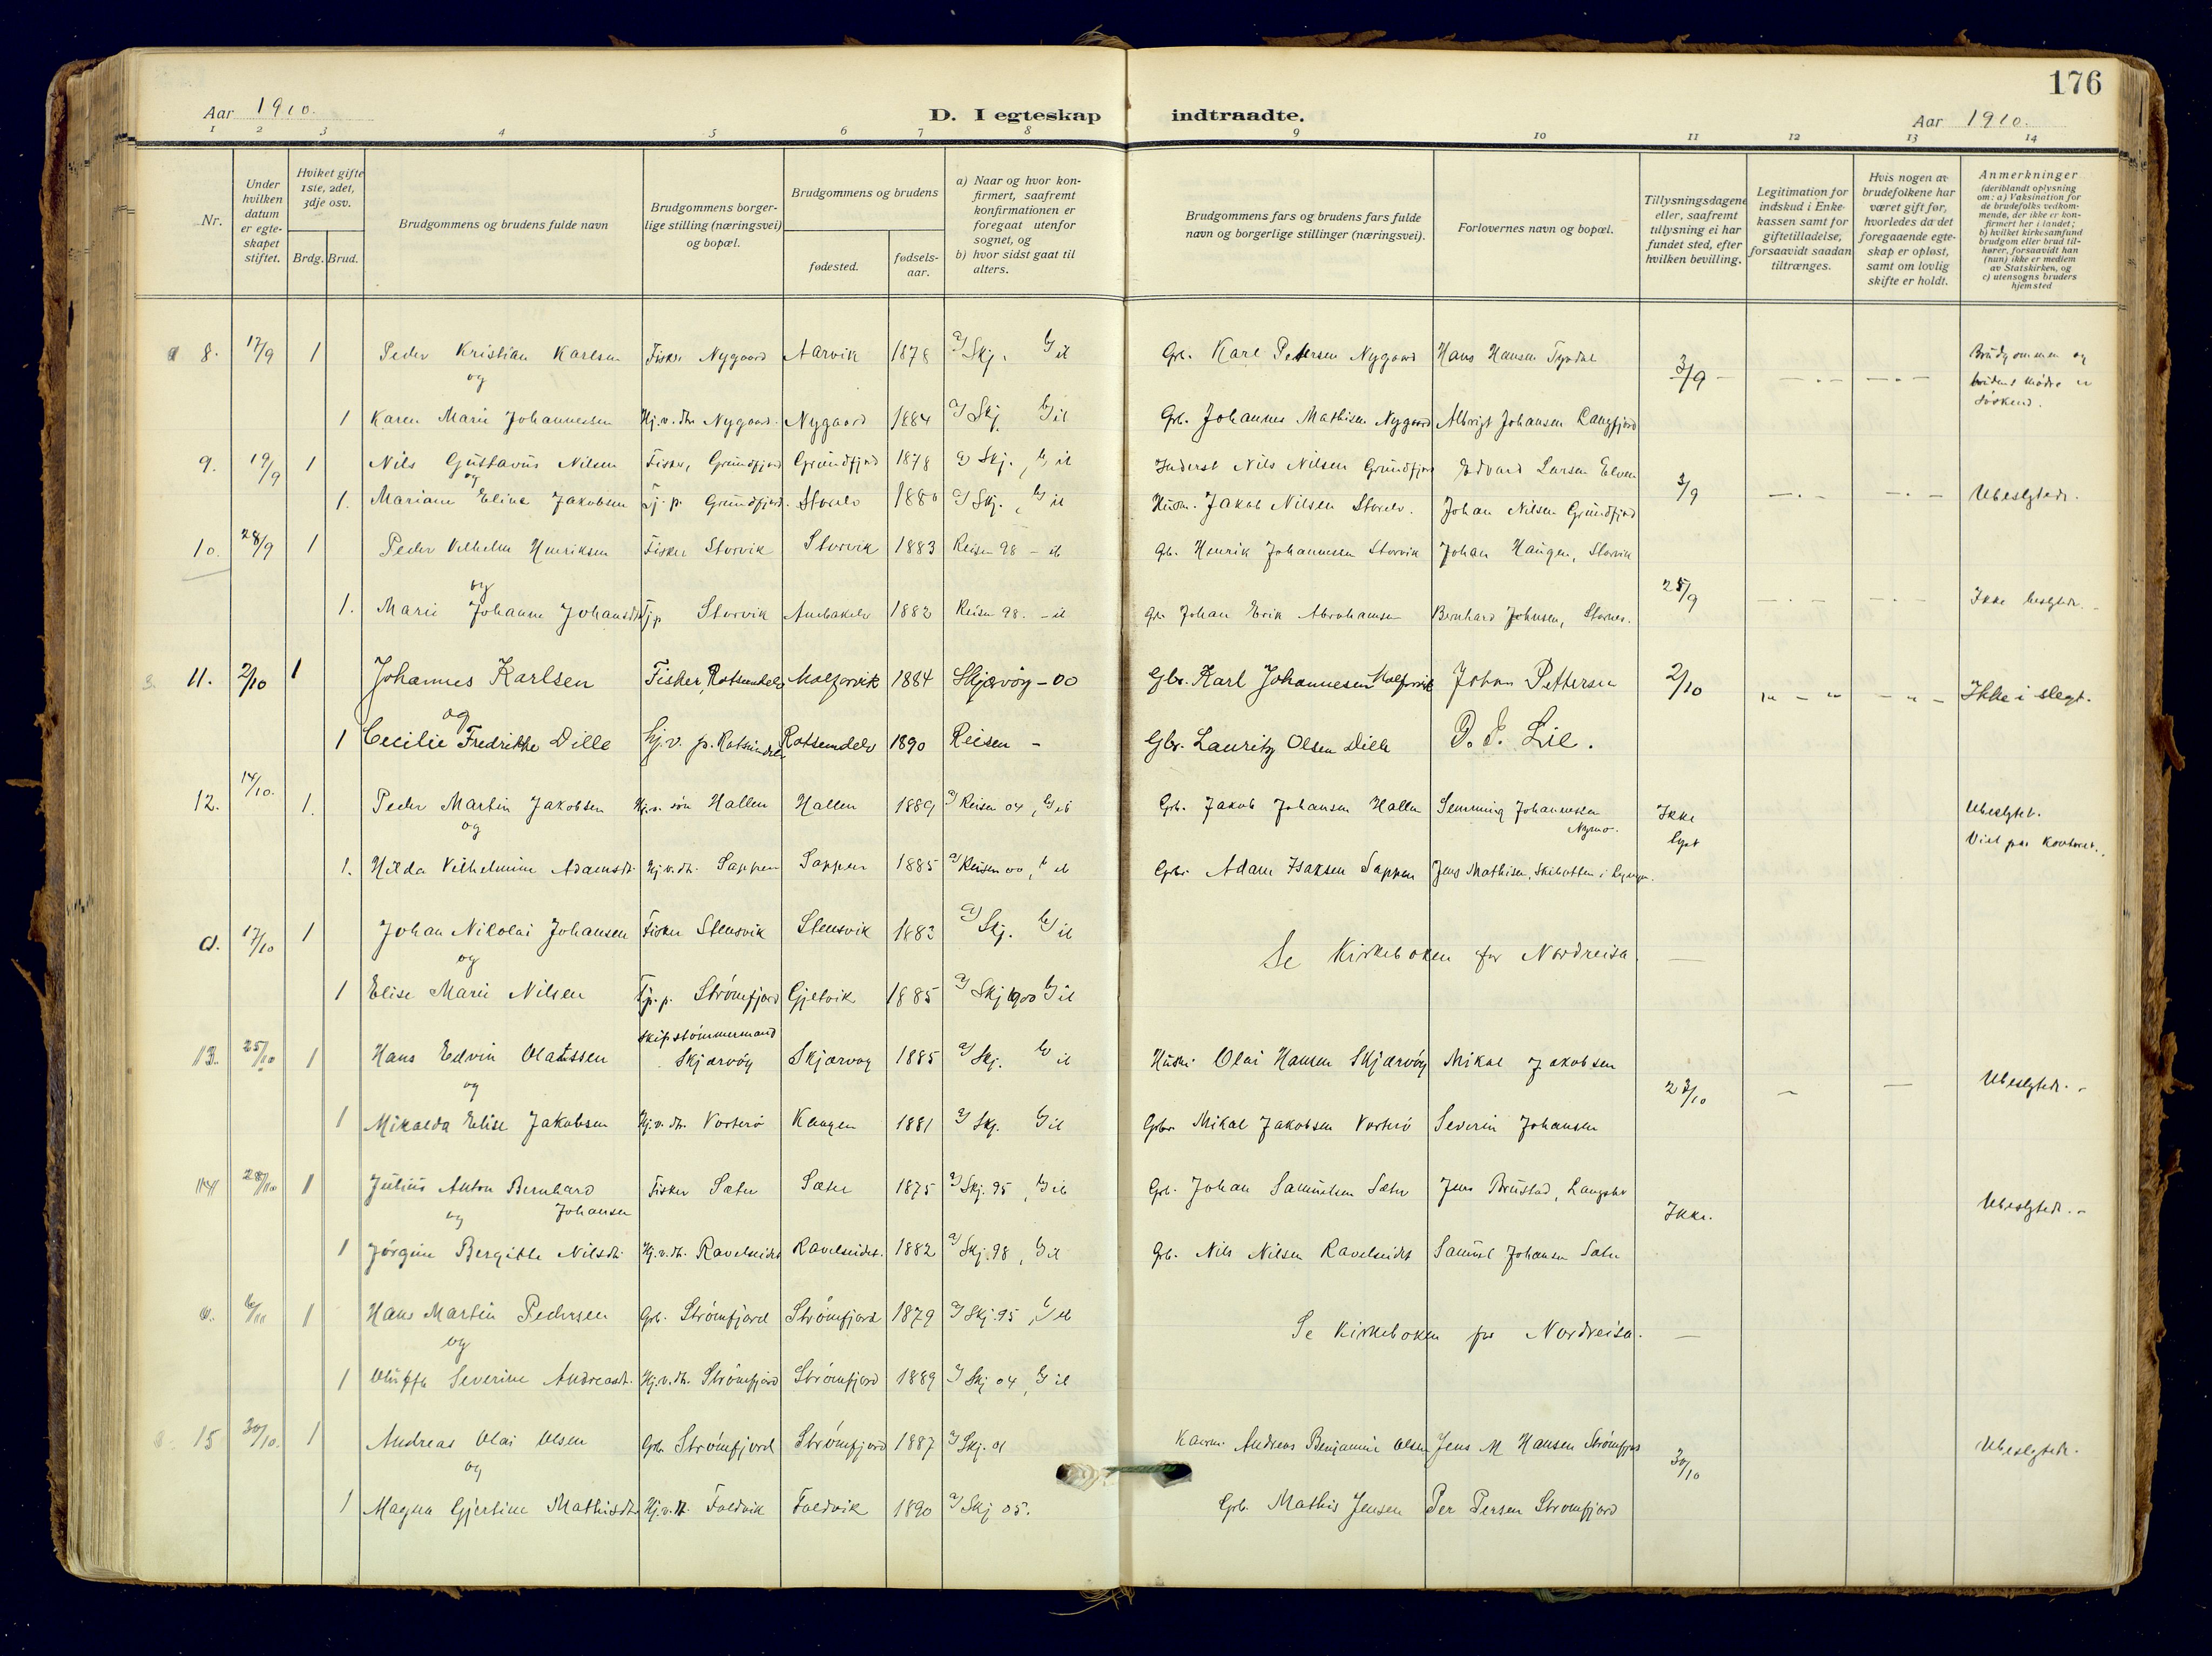 176
Aar 1910.
D. I egteskap indtraadte.
Aar 1910.
1 2 3 4 5 6 7 8 9 10 11 12 13 14
Nr.
Under hvilken datum er egte- skapet stiftet.
Hviket gifte 1ste, 2det, 3dje osv.
Brdg. Brud.
Brudgommens og brudens fulde navn
Brudgommens borger- lige stilling (næringsvei) og bopæl.
Brudgommens og brudens
fødested.
fødsels- aar.
a) Naar og hvor kon- firmert, saafremt konfirmationen er foregaat utenfor sognet, og
b) hvor sidst gaat til alters.
Brudgommens fars og brudens fars fulde navn og borgerlige stillinger (næringsvei).
Forlovernes navn og bopæl.
Tillysningsdagene eller, saafremt tillysning ei har fundet sted, efter hvilken bevilling.
Legitimation for indskud i Enke- kassen samt for giftetilladelse, forsaavidt saadan tiltrænges.
Hvis nogen av brudefolkene har været gift før, hvorledes da det foregaaende egte- skap er opløst, samt om lovlig skifte er holdt.
Anmerkninger (deriblandt oplysning om: a) Vaksination for de brudefolks vedkom- mende, der ikke er kon- firmert her i landet; b) hvilket kirkesamfund brudgom eller brud til- hører, forsaavidt han (hun) ikke er medlem av Statskirken, og c) utensogns bruders hjemsted
8. 17/9 1 Peder Kristian Karlsen Fisker Nygaard Aarvik 1878 a) Skj. b) il Grb. Karl Petersen Nygaard Hans Hansen 3/9 - - . - - . - Brudgommen og
og brudens mødre er
1 Karen Marie Johannessen Hj.v.dtr. Nygaard. Nygaard 1884 a) Skj b) il Grb. Johannes Mathisen Nygaard Albrigt Johansen Langfjord søskend.
9. 19/9 1 Nils Gustavus Nilsen Fisker, Grundfjord Grundfjord 1878 a) Skj., b) il Inderst Nils Nilsen Grundfjord Edvard Larsen Elven
og 3/9 - . - - . - Ubeslgtede.
1. Mariane Eline Jakobsen Tj. p. Grundfjord. Storelv 1880 a) Skj., b) il Husm. Jakob Nilsen Storelv. Johan Nilsen Grundfjord
10. 28/9 1 Peder Vilhelm Henriksen Fisker Storvik Storvik 1883 Reisen 98 - il Gb. Henrik Johannesen Storvik Johan Haugen, Storvik
og 25/9 - . - - . - Ikke beslgtede. -
1. Marie Johanne Johansdtr Tjp Storvik 1882 Reisen 98. - il Gb. Johan Erik Abrahamsen Bernhard Johnsen, Stornes.
11. 2/10 1 Johannes Karlsen Fisker, Rotsundelv Molfjorvik 1884 Skjervöy - 00 Gbr. Karl Johannesen Molfjorvik Johan Pettersen 2/10 " - " - " - Ikke i slegt.
og
1 Cecilie Fredrikke Dille hj.v. p. Rotsundelv Rotsundelv 1890 Reisen - Gbr. Lauritz Olsen Dille Lie.
12. 14/10. 1. Peder Martin Jakobsen Hj.v. søn Hallen Hallen 1889 a) Reisen 04, b) il Grb. Jakob Johansen Hallen Semming Johannesen Nymo. Ikke lyst Ubeslgtet.
og Viet paa Kontoret.
1. Hilda Vilhelmine Adamsdtr. Hj.v.dtr. Sappen Sappen 1885 a) Reisen 00, b il Grbr Adam Isaksen Sappen Jens Mathisen, Skibotten i Lyngen.
a. 17/10 1 Johan Nikolai Johansen Fisker Stensvik Stensvik 1883 a) Skj. b) il
og Se Kirkeboken for Nordreisa. -
1 Elise Marie Nilsen Tj. p. Strømfjord Gjetvik 1885 a) Skj 1900 b) il
13. 25/10 1 Hans Edvin Olaissen skipstømmermand Skjærvöy Skjærvøy 1885 a) Skj. b) il Husm. Olai Hansen Skjærvöy Mikal Jakobsen
og 23/10 - - Ubeslgtede. -
1 Mikalda Elise Jakobsen Hj.v.dtr. Vorterø Kaagen 1881 a) Skj. b) il Grbr Mikal Jakobsen Vorterø Severin Johansen
14 28/10 1 Julius Anton Bernhard Johansen Fisker Sæter Sæter 1875 a) Skj. 95, b) il Grb. Johan Samuelsen Sæter Jens Brustad, Langslet Ikke. Ubeslgtede. -
og
1 Jørgine Bergitte Nilsdtr. Hj.v.dtr. Ravelseidet Ravelseidet. 1882 a) Skj. 98, b) il Grb. Nils Nilsen Ravelseidet Samuel Johansen Sæter
1 Hans Martin Pedersen Grb. Strømfjord Strømfjord 1879 a) Skj. 95, b) il
og Se Kirkeboken for Nordreisa. -
1 Oluffa Severine Andreasdtr. Hj.v.dtr. Strømfjord Strømfjord 1889 a) Skj. 04, b) il
15 30/10. 1 Andreas Olai Olsen Grb. Strømfjord Strømfjord 1887 a) Skj. 01 Andreas Benjamin Olsen Jens M Hansen Strømfjord
og 30/10 Ubeslgtede.
1 Magna Gjertine Mathisdtr. Hj.v.dt. Foldvik Foldvik 1890 a) Skj 05. Grb. Mathis Jensen Per Persen Strømfjord